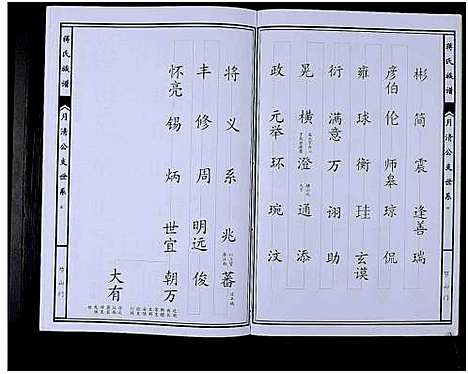 彬 简 震 逢善 瑞
彦伯 伦 师皋 琼 侃
雍 球 衡 珪 玄谟
衍 满意 万 诩 助
晃 横 澄 通 添
政 元举 环 琬 汶
将 义 系 兆 蕃
丰 修 周 明远 俊
怀亮 锡 炳 世宜 朝万
大有
蒋氏族谱
月清公支世系